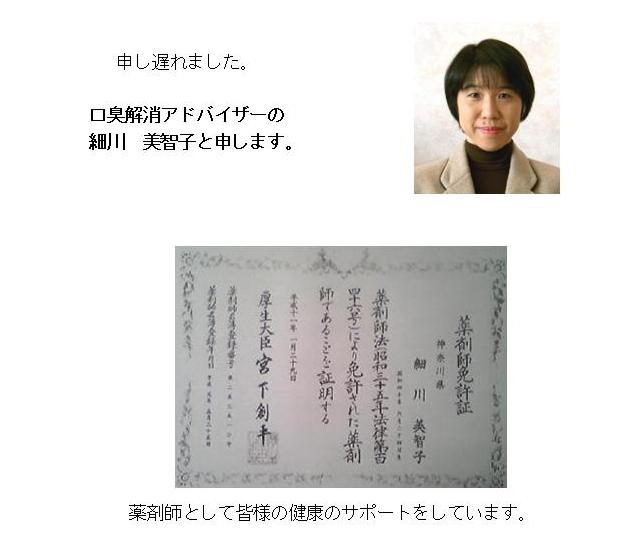 申し遅れました。
口臭解消アドバイザーの
細川　美智子と申します。
薬剤師免許証
神奈川県
細川　美智子
薬剤師法(昭和三十五年法律第百
四十六号)により免許された薬剤
師であることを証明する
平成十一年一月二十九日
厚生大臣　宮下創平
薬剤師名簿登録番号
薬剤師名簿登録年月日
薬剤師として皆様の健康のサポートをしています。